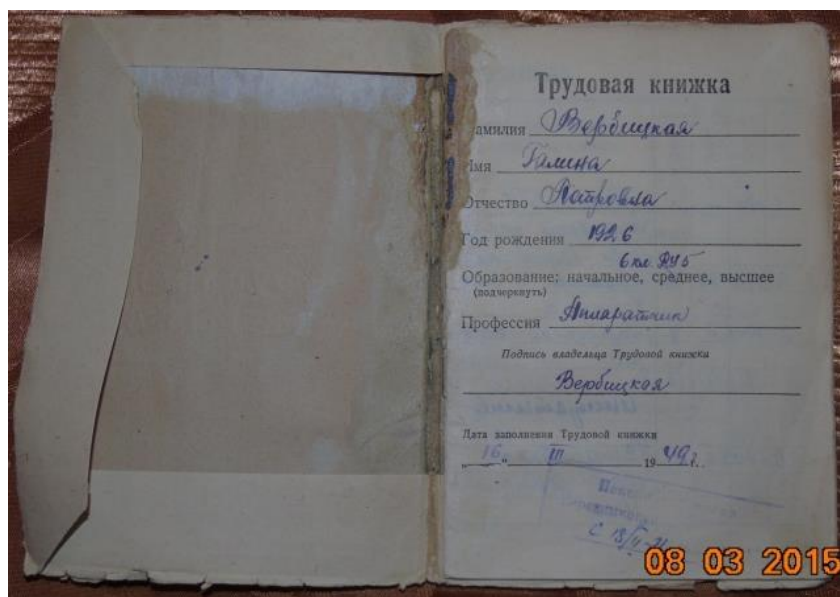 Трудовая книжка
амилия Вербицкая
Имя Галина
Отчество Петровна
Год рождения 1926
6 кл.
Образование: начальное, среднее, высшее
(подчеркнуть)
Профессия Аппаратчик
Подпись владельца Трудовой книжки
Вербицкая
Дата заполнения Трудовой книжки
„16“ III 1949 г.
08 03 2015